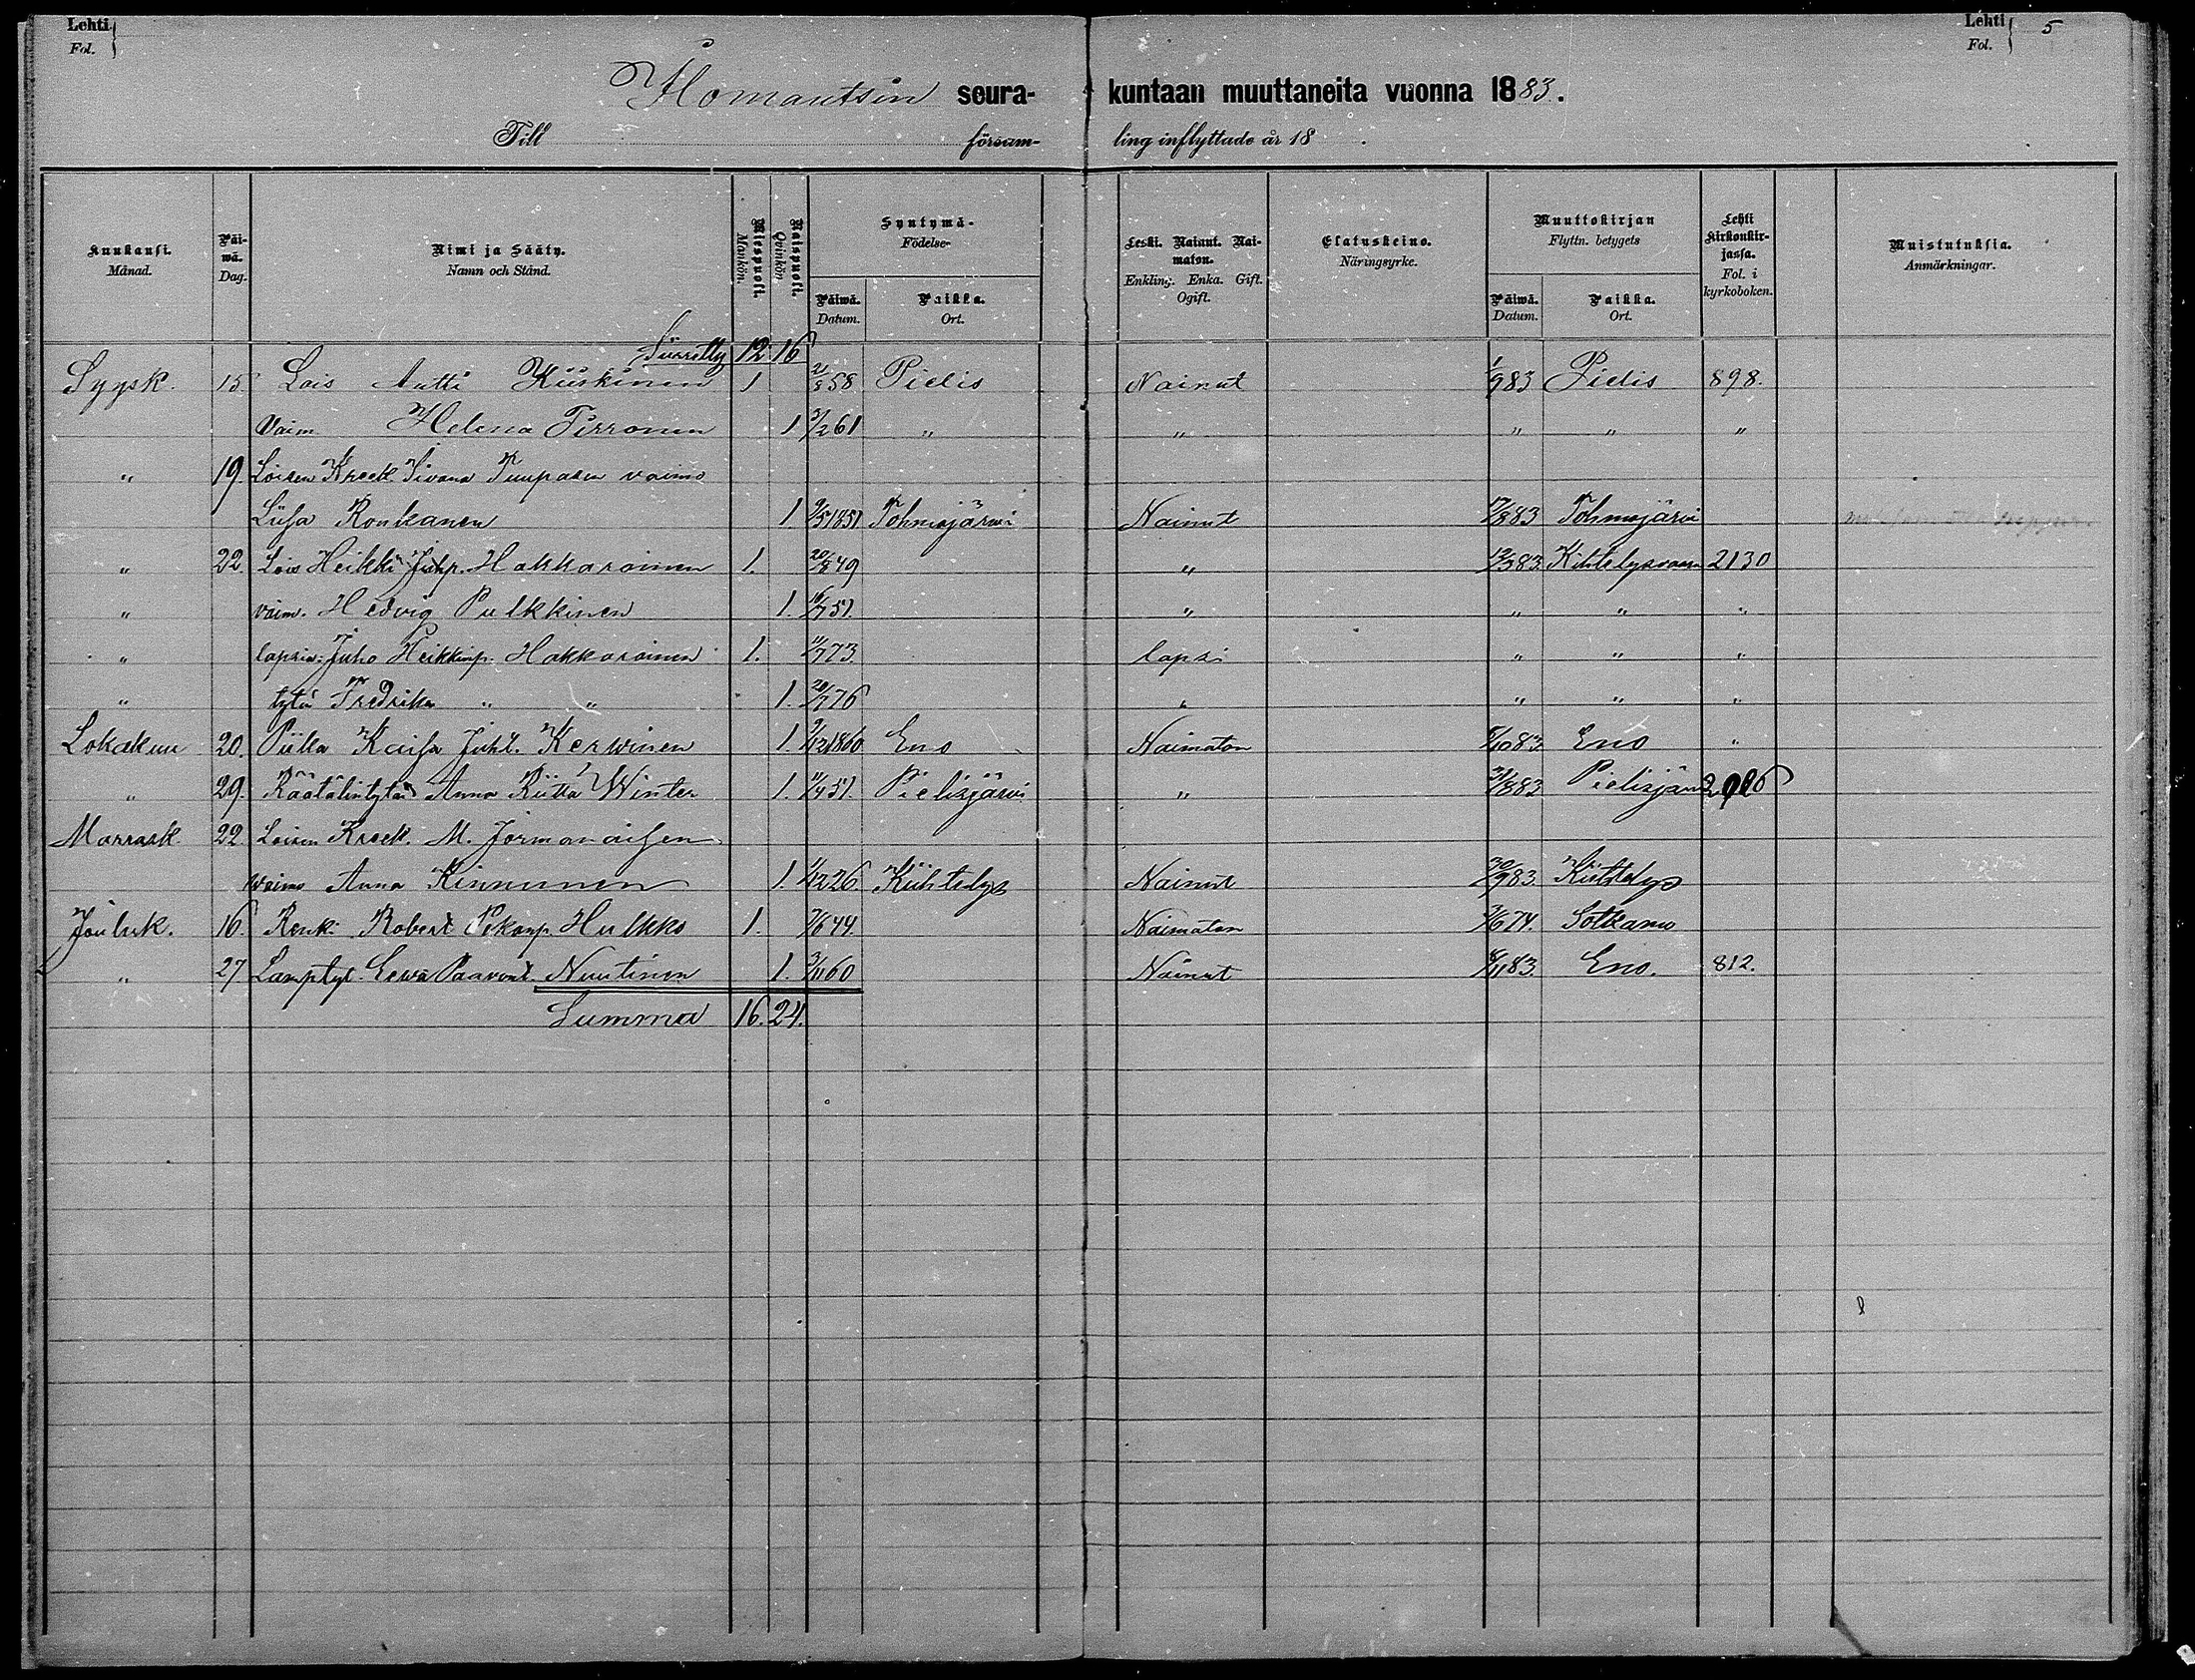 Lehti Fol. Lehti Fol. 5
Ilomantsin seura- kuntaan muuttaneita vuonna 1883.
Till församling inflyttade år 18 .
Kuukausi. Månad. Päiwä. Dag. Nimi ja Sääty. Namn och Stånd. Miespuoli. Mankön. Naispuoli. Qvinkön Syntymä- Födelse- Päiwä. Datum. Paikka. Ort. Leski. Nainut. Naimaton. Enkling. Enka. Gift. Ogift. Elatuskeino. Näringsyrke. Muuttokirjan Flyttn. betygets Päiwä. Datum. Paikka. Ort. Lehti kirkonkirjassa. Fol. i kyrkoboken. Muistutuksia. Anmärkningar.
Siirretty 12 16
Syysk. 15 Lois Antti Kiiskinen 1 2/8 58 Pielis Nainut 1/9 83 Pielis 898.
Vaim. Helena Pirronen 1 3/2 61 " " " " "
" 19. Loisen Kreek. Iivana Timpasen vaimo
Liisa Ronkanen 1 9/5 1851 Tohmajärvi Nainut 17/8 83 Tohmajärvi
" 22. Lois Heikki Juhp. Hakkarainen 1. 20/8 49 " 12/3 83 Kihtelysvaara 2130
" vaim. Hedvig Pulkkinen 1. 16/7 51. " " " "
" lapsia: Juho Heikkinp. Hakkarainen 1. 11/7 73. lapsi " " "
" tytä Fredrika " " 1. 20/7 76 " " " "
Lokakuu 20. Piika Kaisa Juht. Kerwinen 1. 9/12 1860 Eno Naimaton 6/10 83 Eno "
" 29. Räätälintytär Anna Riitta Winter 1. 11/4 51. Pielisjärvi " 31/8 83 Pielisjärvi
Marrask. 22. Loisen Kreek. M. Jormanaisen
waimo Anna Kinnunen 1. 1/12 26. Kiihtelys Nainut 30/9 83. Kiihtelys
Jouluk. 16. Renki Robert Pekanp. Hulkko 1. 7/6 44. Naimaton 3/6 74. Sotkamo
" 27 Lamptyt. Eewa Paavont. Nuutinen 1. 3/11 60 Nainut 8/11 83 Eno. 812.
Summa 16. 24.